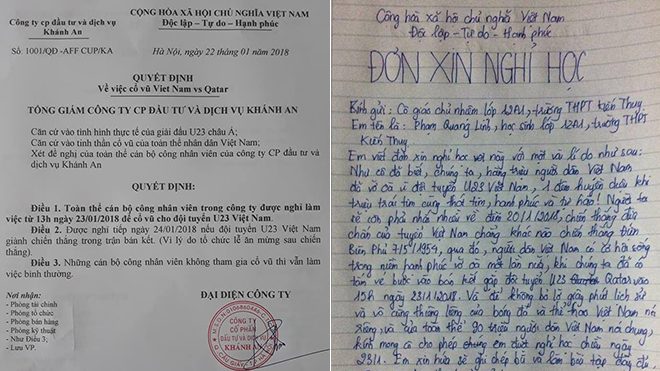 Công ty cp đầu tư và dịch vụ
Khánh An
CỘNG HÒA XÃ HỘI CHỦ NGHĨA VIỆT NAM
Độc lập – Tự do – Hạnh phúc
Số: 1001/QĐ -AFF CUP/KA
Hà Nội, ngày 22 tháng 01 năm 2018
QUYẾT ĐỊNH
Về việc cổ vũ Viet Nam vs Qatar
TỔNG GIÁM CÔNG TY CP ĐẦU TƯ VÀ DỊCH VỤ KHÁNH AN
Căn cứ vào tình hình thực tế của giải đấu U23 châu Á;
Căn cứ vào tinh thần cổ vũ của toàn thể nhân dân Việt Nam;
Xét đề nghị của toàn thể cán bộ công nhân viên của công ty CP đầu tư và
dịch vụ Khánh An
QUYẾT ĐỊNH:
Điều 1. Toàn thể cán bộ công nhân viên trong công ty được nghỉ làm
việc từ 13h ngày 23/01/2018 để cổ vũ cho đội tuyển U23 Việt Nam.
Điều 2. Được nghỉ tiếp ngày 24/01/2018 nếu đội tuyển U23 Việt Nam
giành chiến thắng trong trận bán kết. (Vì lý do tổ chức lễ ăn mừng sau chiến
thắng)
Điều 3. Những cán bộ công nhân viên không tham gia cổ vũ thì vẫn làm
việc bình thường.
Nơi nhận:
- Phòng tài chính
- Phòng tổ chức
- Phòng bán hàng
- Phòng kỹ thuật
- Như Điều 3;
- Lưu VP.
ĐẠI DIỆN CÔNG TY
CÔNG TY
CỔ PHẦN
ĐẦU TƯ VÀ DỊCH VỤ
KHÁNH AN
Cộng hoà xã hội chủ nghĩa Việt Nam
Độc lập - Tự do - Hạnh phúc
ĐƠN XIN NGHỈ HỌC
Kính gửi: Cô giáo chủ nhiệm lớp 12A1, trường THPT Kiến Thuỵ
Em tên là: Phạm Quang Linh, học sinh lớp 12A1, trường THPT
Kiến Thuỵ
Em viết đơn xin nghỉ học này với một vài lí do như sau:
Như cô đã biết, chúng ta, hàng triệu người dân Việt Nam
đã vỡ oà vì đội tuyển U23 Việt Nam, 1 đêm huyền diệu khi
triệu trái tim cùng thổn thức, hạnh phúc và tự hào! Người ta
sẽ còn phải nhắc nhiều về đêm 20/1/2018, chiến thắng
chân của tuyển Việt Nam chẳng khác nào chiến thắng Điện
Biên Phủ 7/5/1954, qua đó, người dân Việt Nam có cơ hội sống
trong niềm hạnh phúc vỡ oà một lần nữa, khi chúng ta đã
bước vào bán kết gặp đội tuyển U23 Qatar vào
15h ngày 23/1/2018. Và để không bỏ lỡ giây phút lịch sử
và vô cùng thiêng liêng của bóng đá và thể thao Việt Nam nói
riêng, và của toàn thể 90 triệu người dân Việt Nam nói chung,
kính mong cô cho phép em được nghỉ học chiều ngày
23/1. Em xin hứa sẽ ghi chép bài và làm bài tập đầy đủ